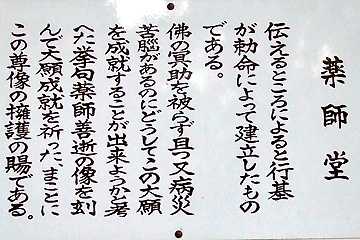 薬師堂
伝えるところによると行基
が勅命によって建立したもの
である。
佛の冥助を被らず且つ又病災
苦脳があるのにどうしてこの大願
を成就することが出来ようかと考
へた挙句薬師善逝の像を刻
んで大願成就を祈った、まことに
この尊像の擁護の賜である。